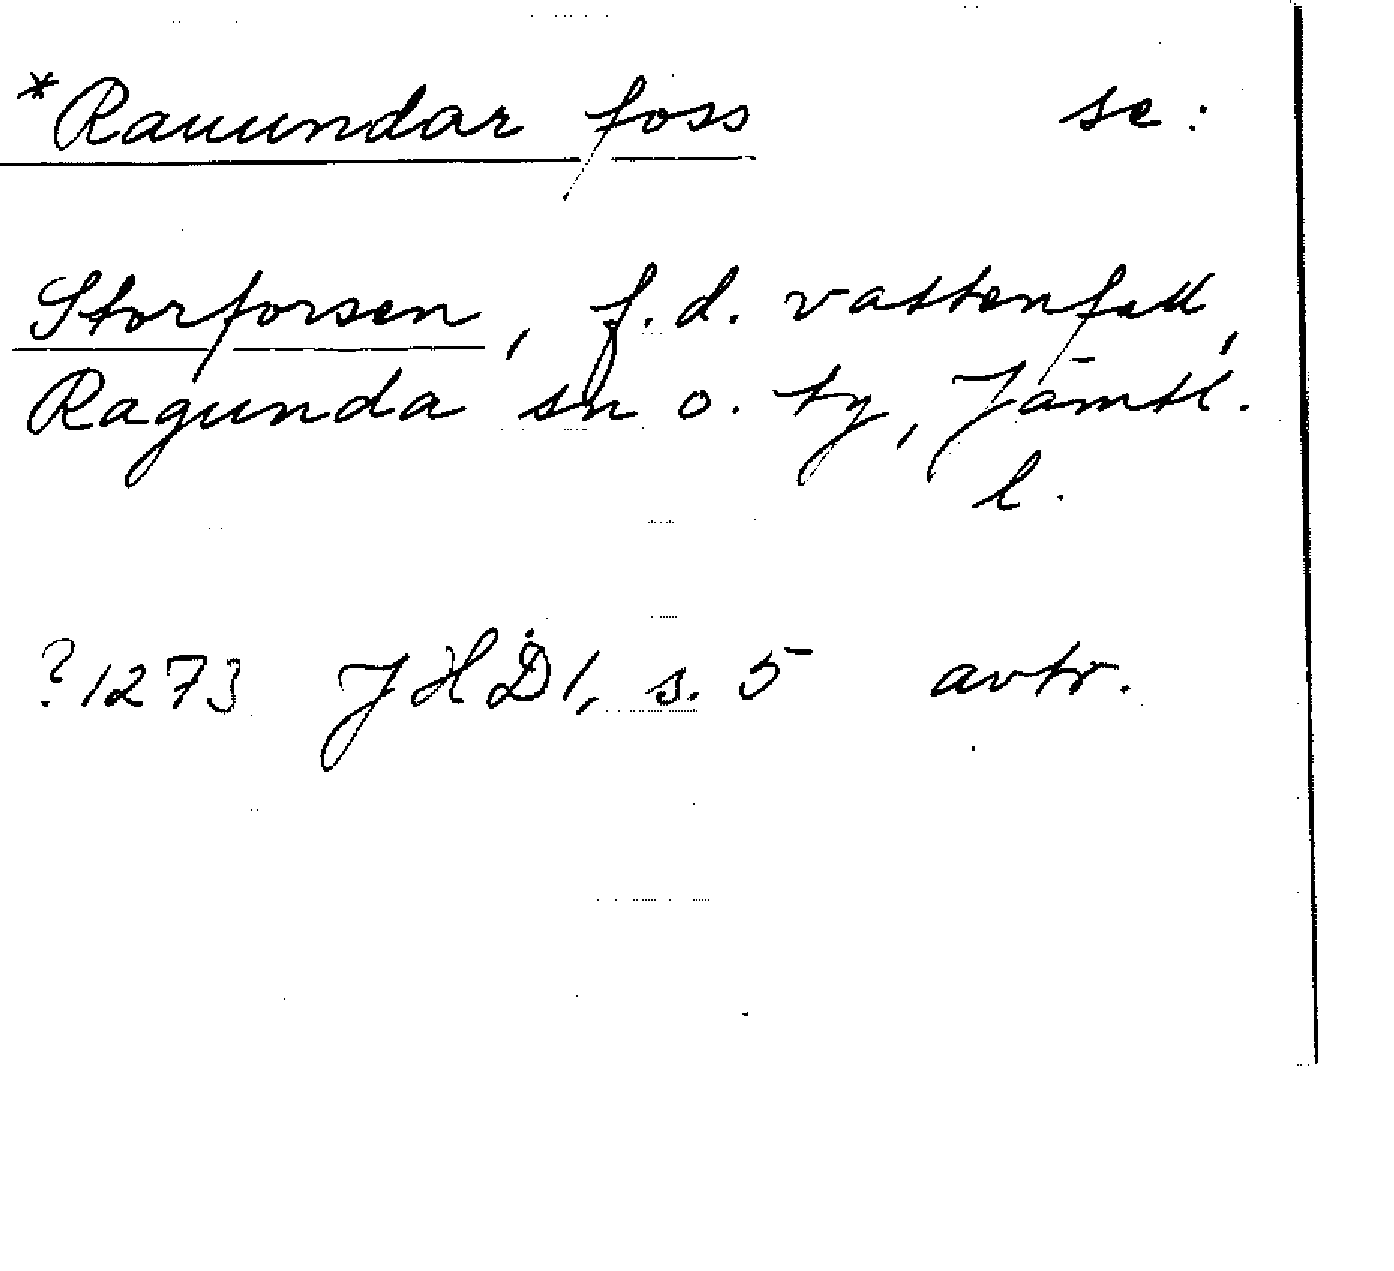 *Rauundar foss se:
Storforsen, f.d. vattenfall,
Ragunda sn o. tg, Jämtl.
l.
?1273 JHD 1, s. 5 avtr.